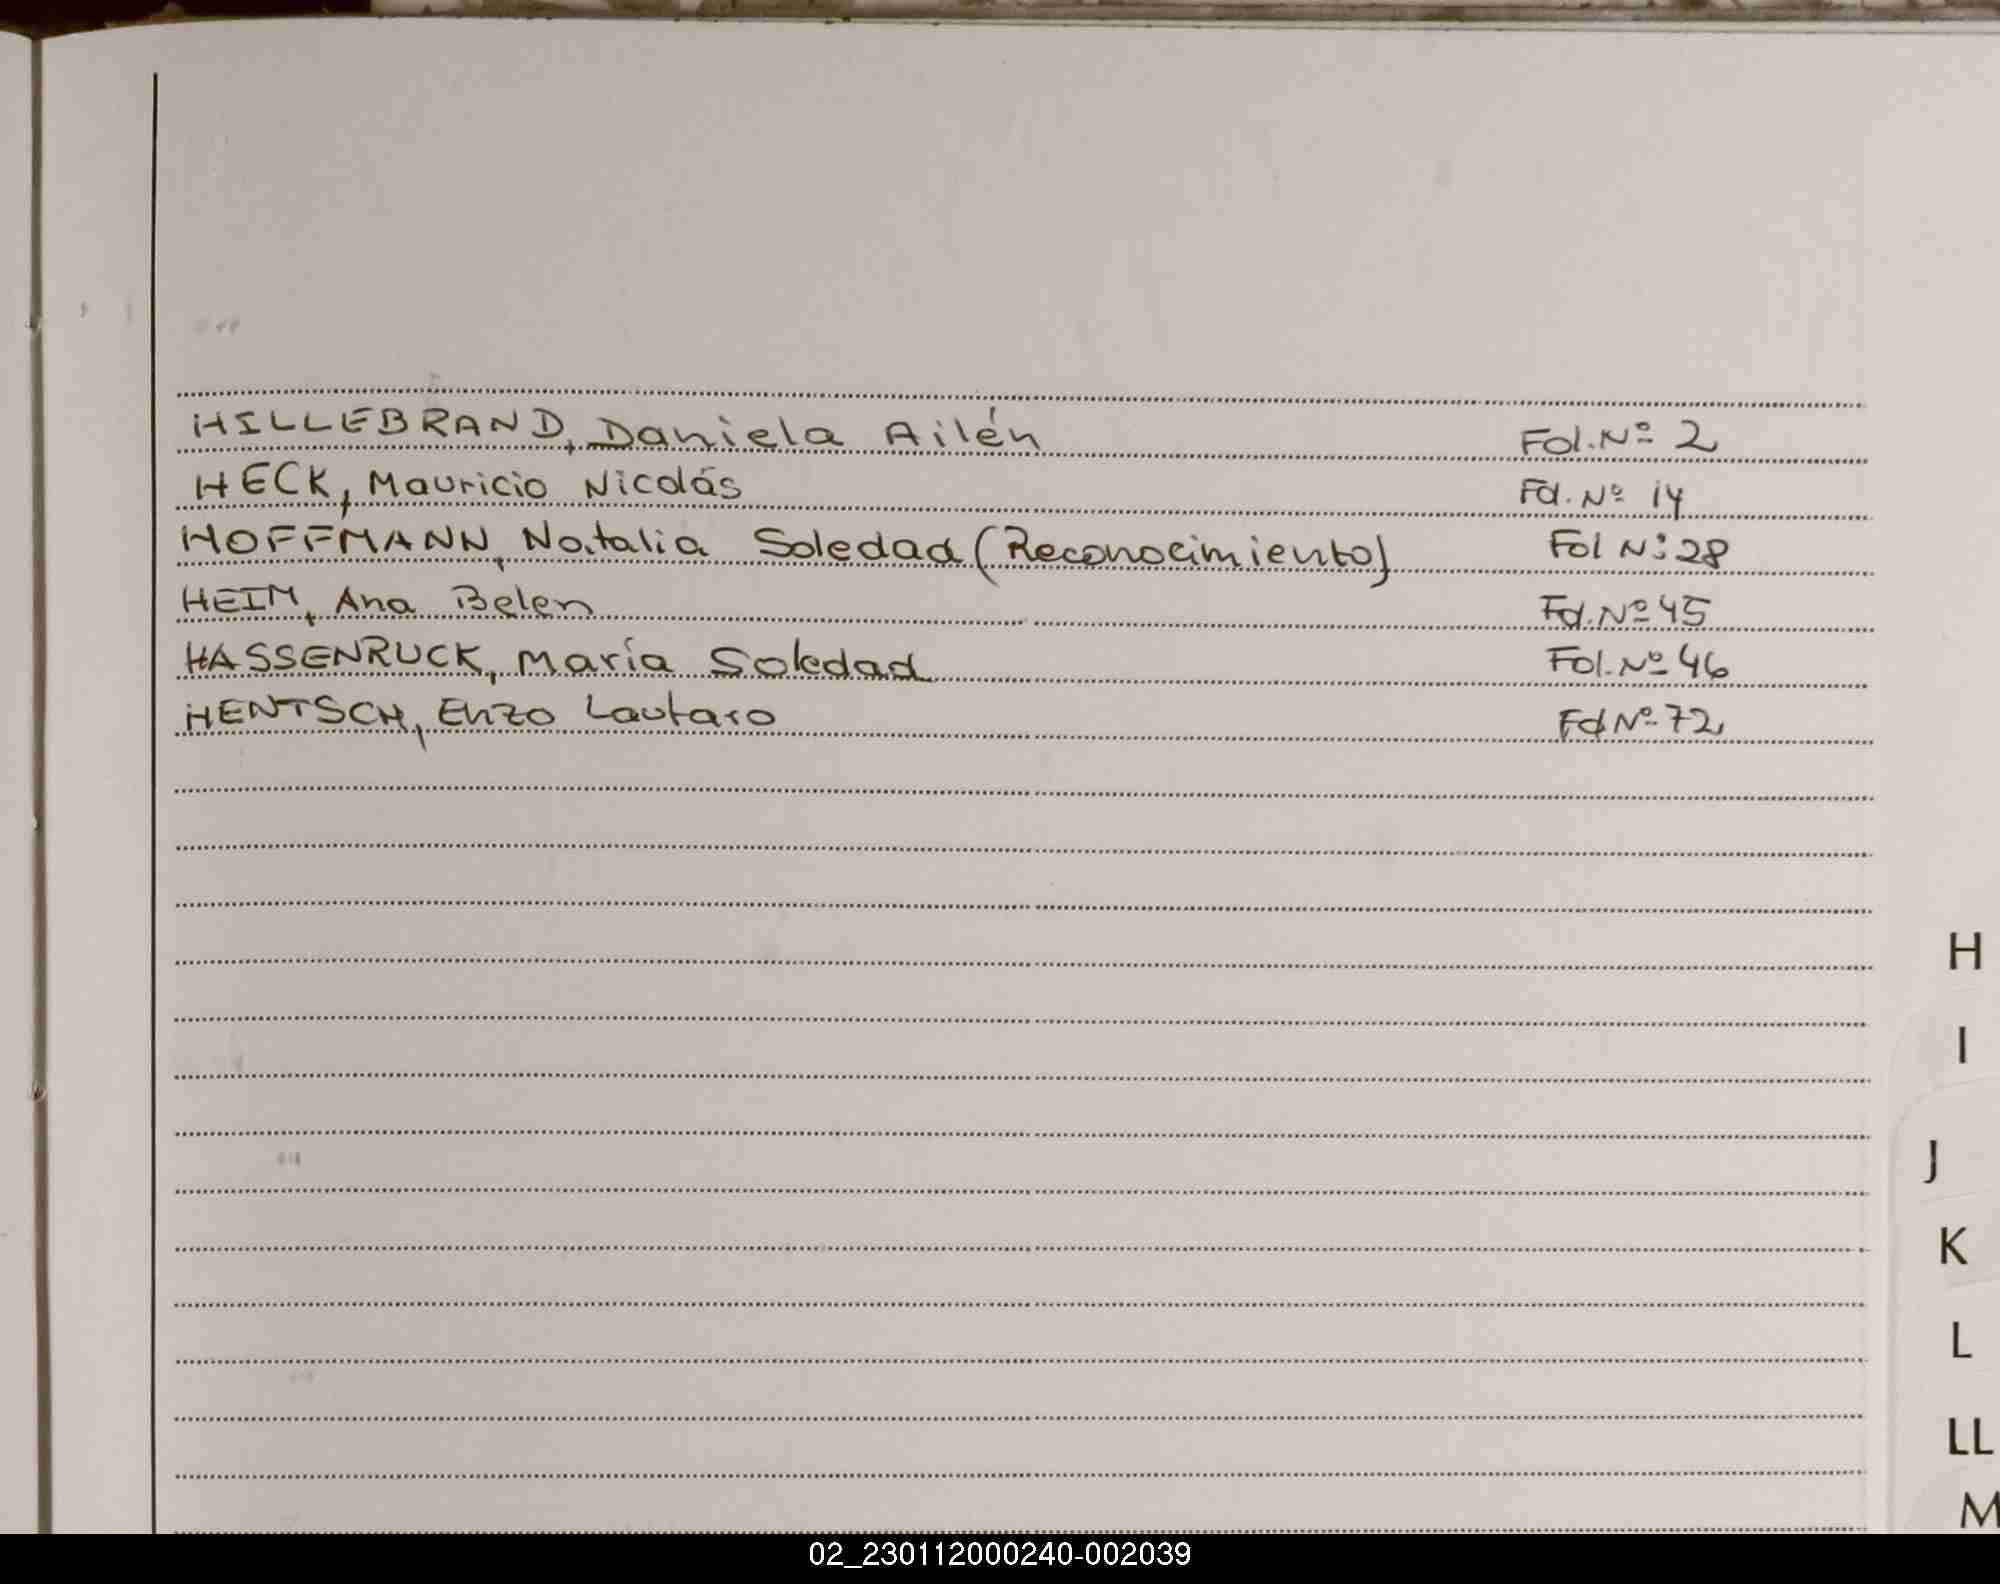 HILLEBRAND, Daniela Ailén Fol. Nº 2
HECK, Mauricio Nicolás Fol. Nº 14
HOFFMANN, Natalia Soledad (Reconocimiento) Fol Nº 28
HEIM, Ana Belen Fol. Nº 45
HASSENRUCK, María Soledad Fol. Nº 46
HENTSCH, Enzo Lautaro Fol Nº 72
H
I
J
K
L
LL
M
02_230112000240-002039